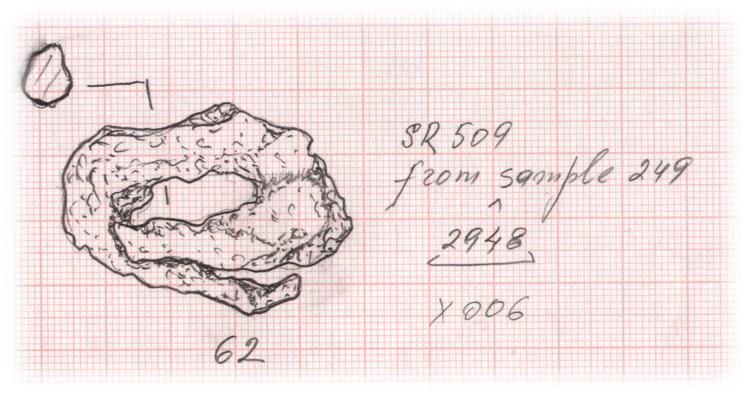 SR 509
from sample 249
^
2948
X006
62